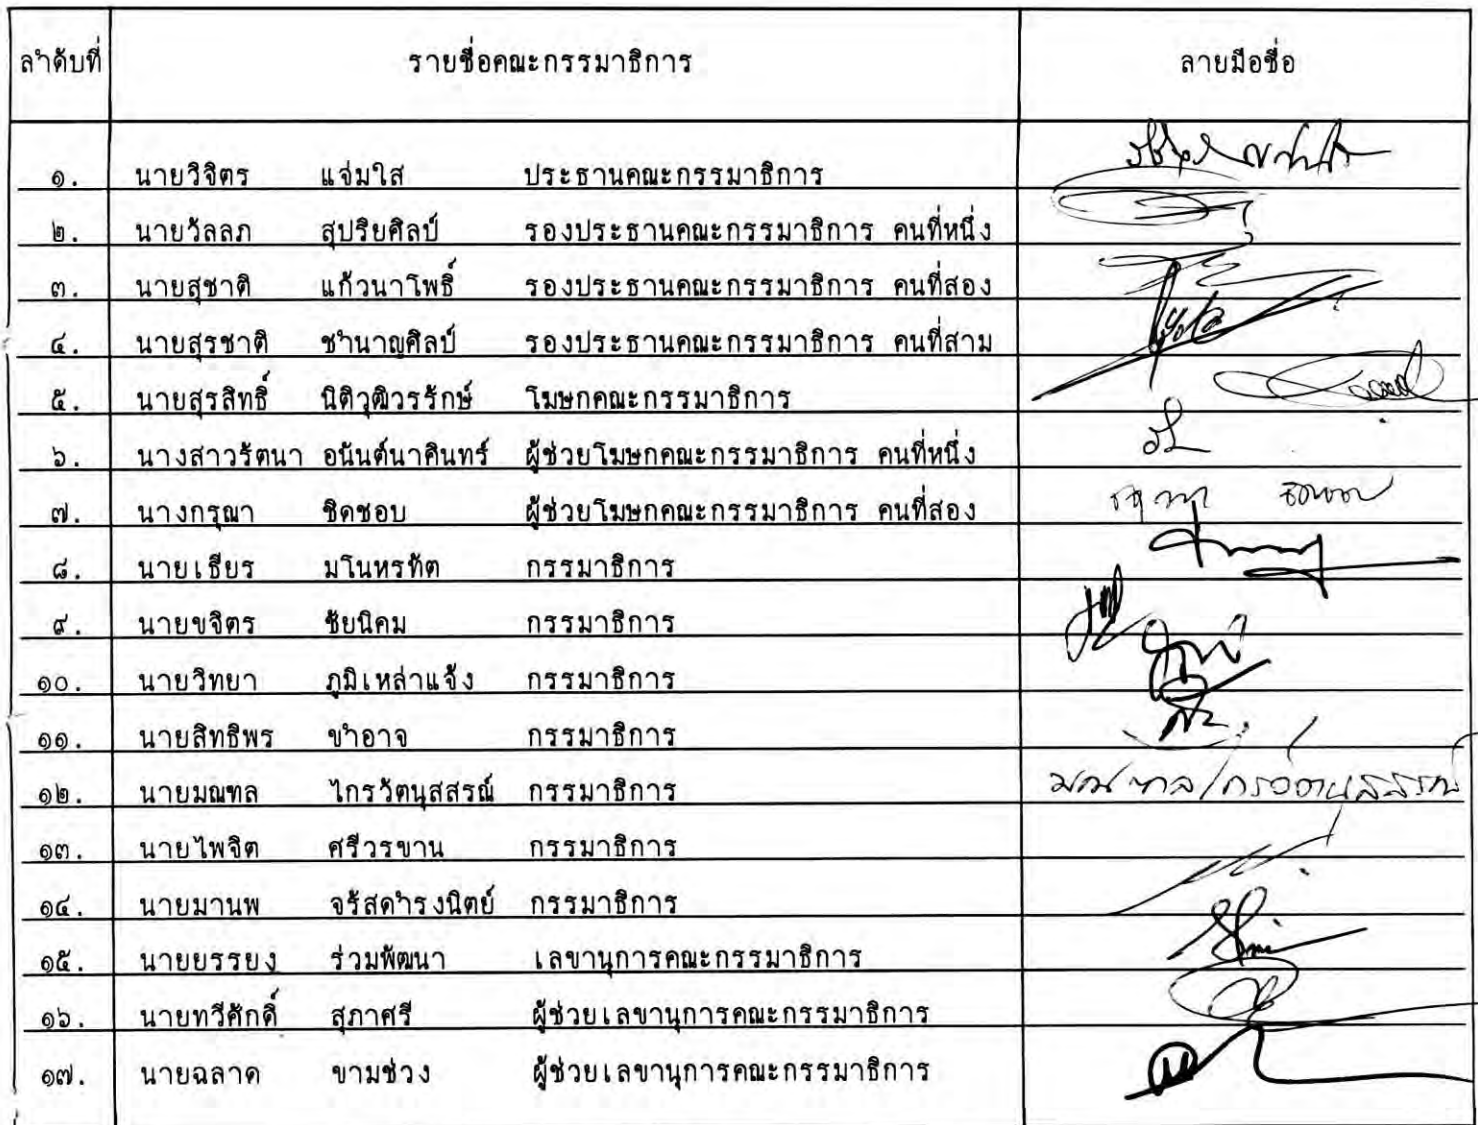 ลำดับที่ รายชื่อคณะกรรมาธิการ ลายมือชื่อ
๑. นายวิจิตร แจ่มใส ประธานคณะกรรมาธิการ
๒. นายวัลลภ สุปริยศิลป์ รองประธานคณะกรรมาธิการ คนที่หนึ่ง
๓. นายสุชาติ แก้วนาโพธิ์ รองประธานคณะกรรมาธิการ คนที่สอง
๔. นายสุรชาติ ชำนาญศิลป์ รองประธานคณะกรรมาธิการ คนที่สาม
๕. นายสุรสิทธิ์ นิติวุฒิวรรักษ์ โฆษกคณะกรรมาธิการ
๖. นางสาวรัตนา อนันต์นาคินทร์ ผู้ช่วยโฆษกคณะกรรมาธิการ คนที่หนึ่ง
๗. นางกรุณา ชิดชอบ ผู้ช่วยโฆษกคณะกรรมาธิการ คนที่สอง
๘. นายเธียร มโนหรทัต กรรมาธิการ
๙. นายขจิตร ชัยนิคม กรรมาธิการ
๑๐. นายวิทยา ภูมิเหล่าแจ้ง กรรมาธิการ
๑๑. นายสิทธิพร ขำอาจ กรรมาธิการ
๑๒. นายมณฑล ไกรวัตนุสสรณ์ กรรมาธิการ มณฑล ไกรวัตนุสสรณ์
๑๓. นายไพจิต ศรีวรขาน กรรมาธิการ
๑๔. นายมานพ จรัสดำรงนิตย์ กรรมาธิการ
๑๕. นายยรรยง ร่วมพัฒนา เลขานุการคณะกรรมาธิการ
๑๖. นายทวีศักดิ์ สุภาศรี ผู้ช่วยเลขานุการคณะกรรมาธิการ
๑๗. นายฉลาด ขามช่วง ผู้ช่วยเลขานุการคณะกรรมาธิการ